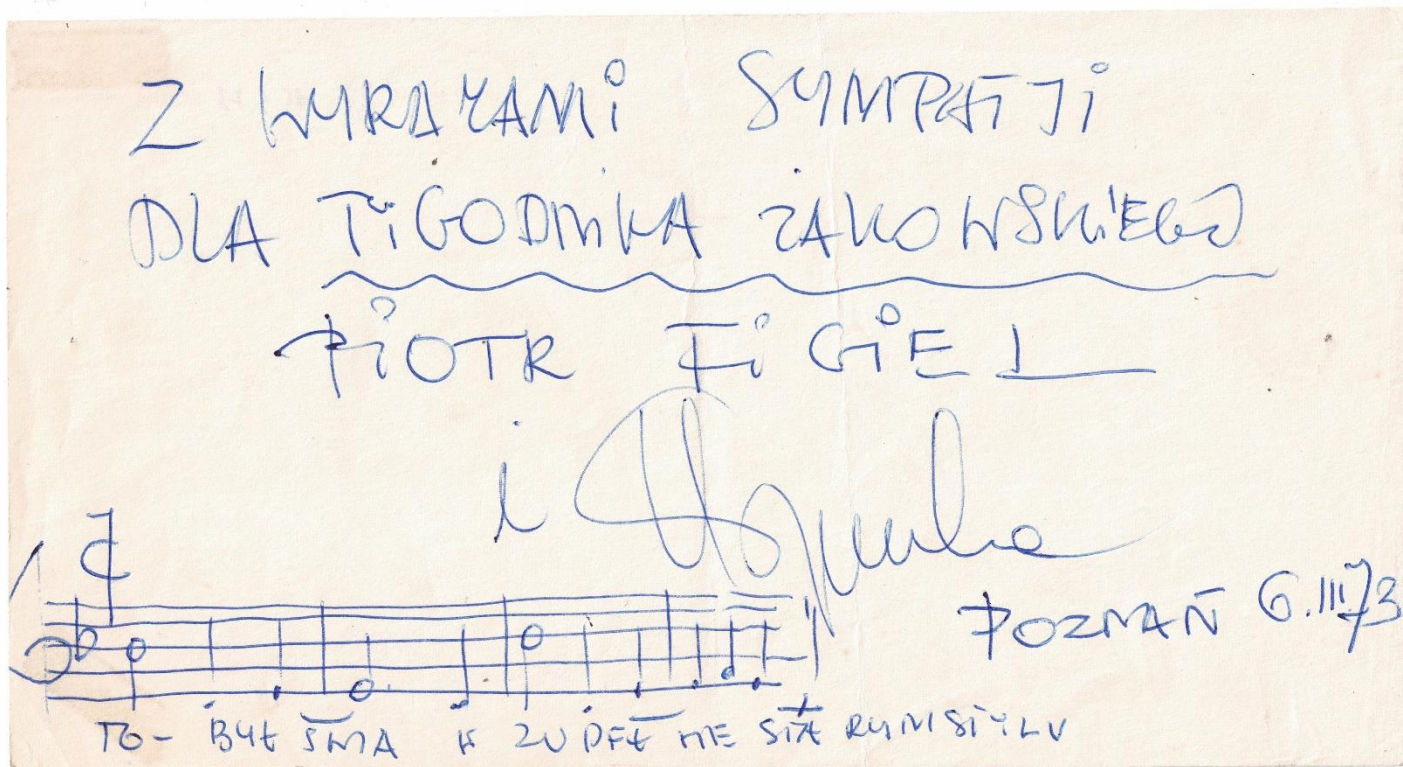 Z WYRAZAMi SYMPATJi
DLA TYGODNiKA ŻAKOWSKiEGO
PiOTR FiGiEL
i
POZNAŃ 6.III 73
TO - BYŁ ŚWIA T W ZUPEŁ NIE STA RYM STYLU